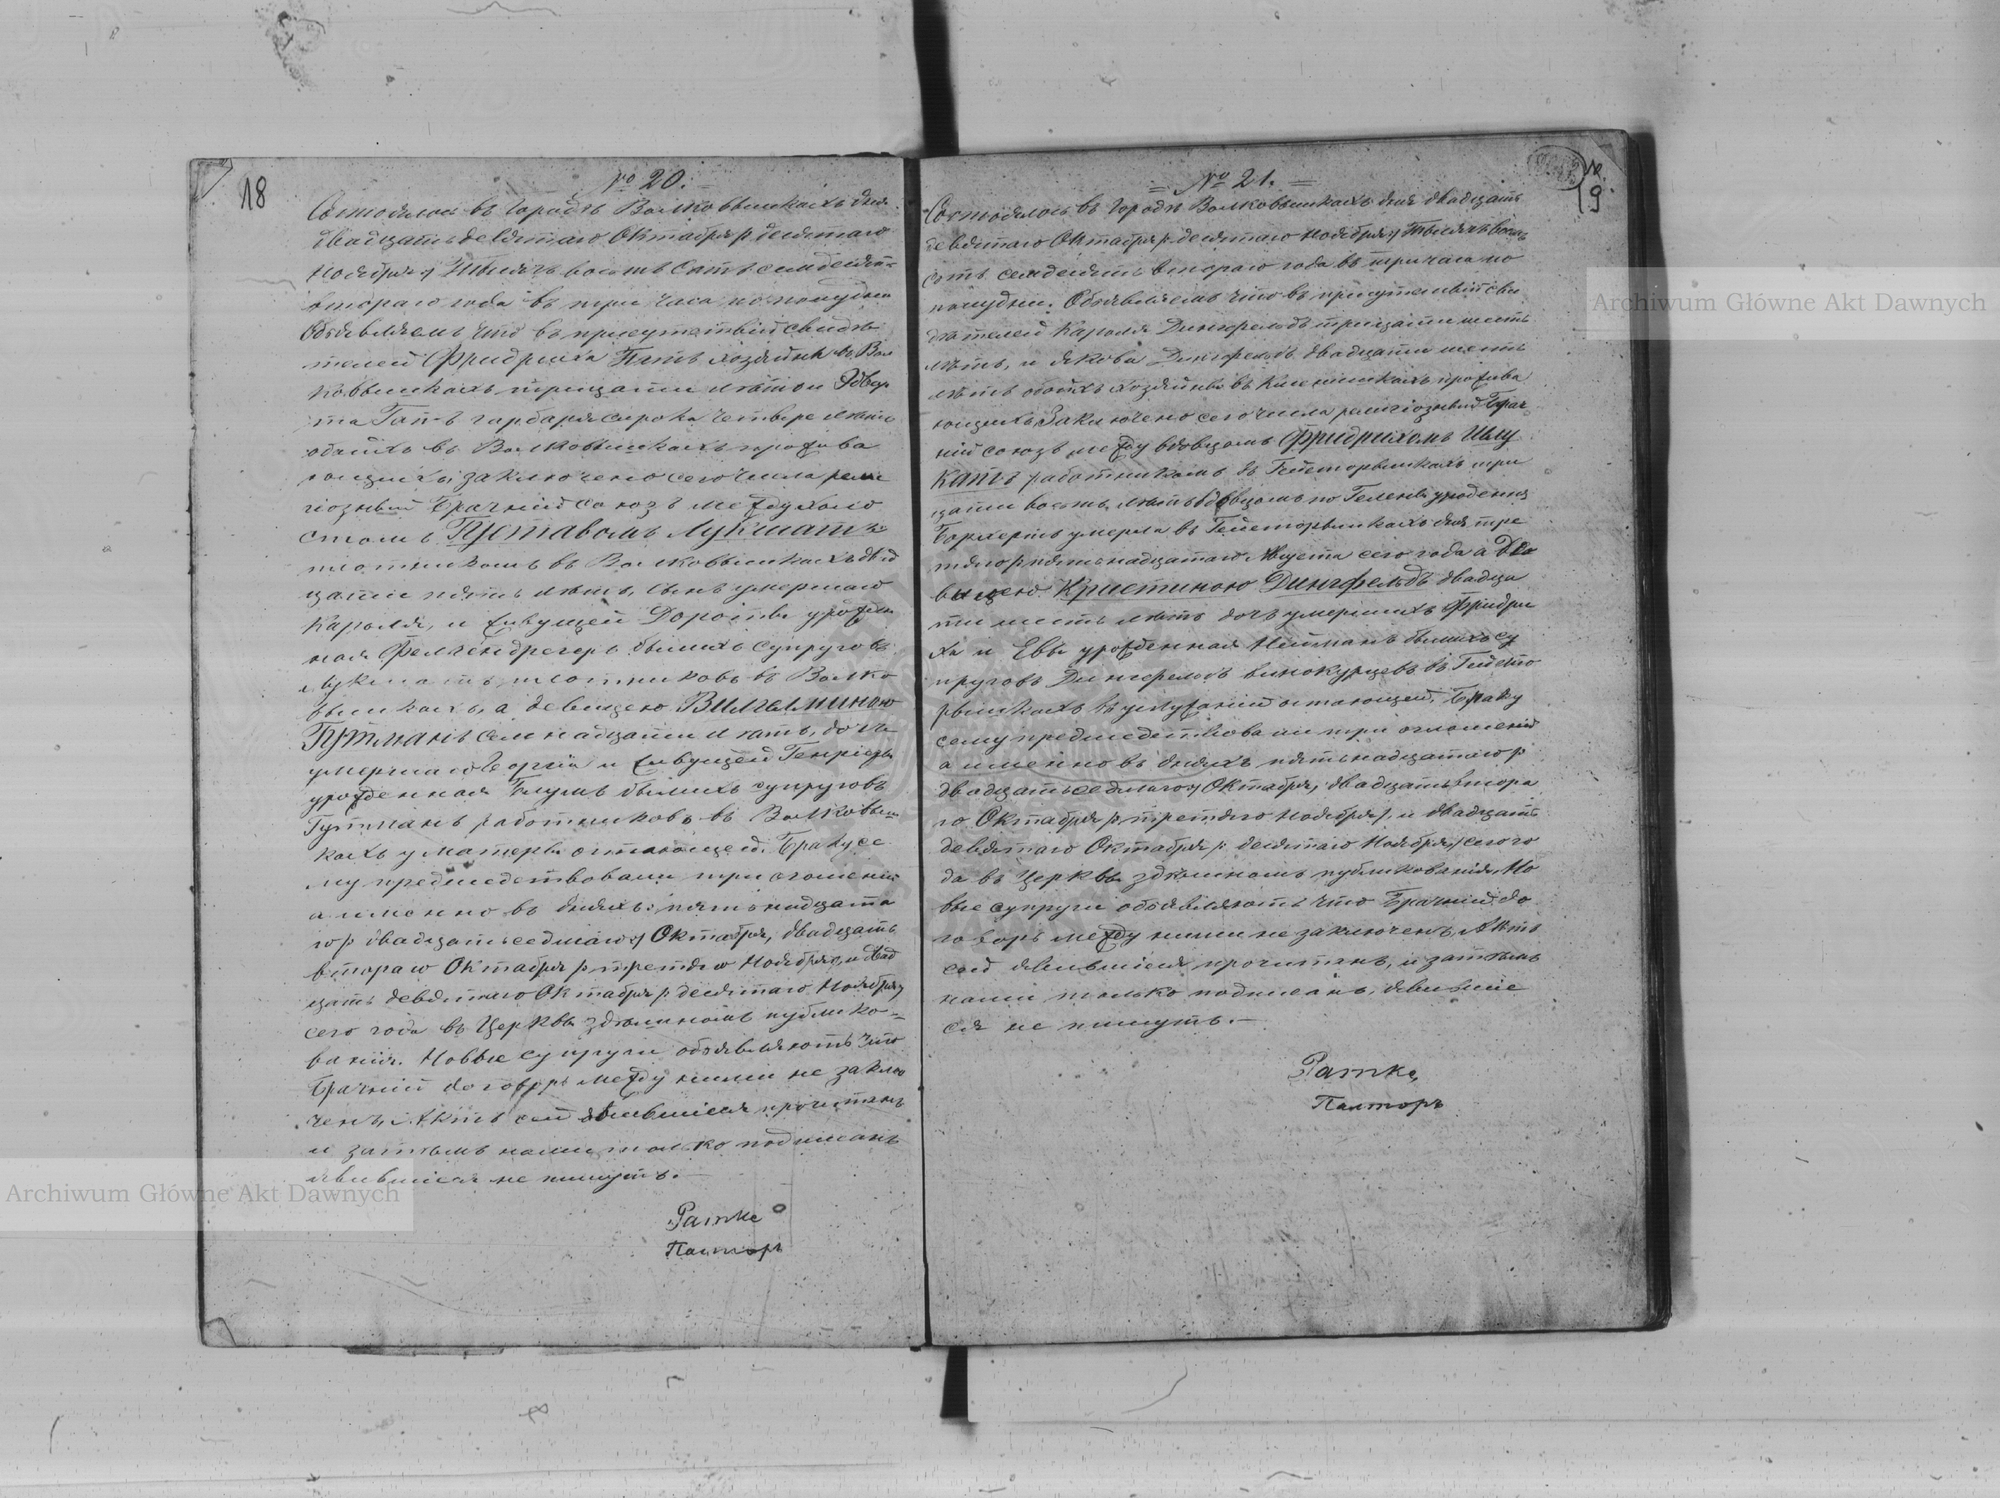 18
№ 20.
Состоялось въ Городѣ Волковышкахъ дня
двадцать девятаго Октября /: десятаго
Ноября :/ Тысяча восемь сотъ семдесятъ
втораго года въ три часа по полудни
Объявляемъ что въ присутствіи свидѣ
телей Фридриха хозяина въ Вол
ковышкахъ тридцати лѣтъ и Эдвар
та гарбаря сорока четыре лѣтъ
обоихъ въ Волковышкахъ прожива
ющихъ; заключено сего числа рели
гіозный Брачный союзъ между холо
стымъ Густавомъ Лукшатъ
плотникомъ въ Волковышкахъ двад
цати пять лѣтъ, сынъ умершаго
Кароля, и живущей Доротеи урожден
ная бывшихъ супруговъ
Лукшатъ плотниковъ въ Волко
вышкахъ, а девицею Вилгелминою
Гутманъ семнадцати лѣтъ, дочь
умершаго Георгіа и живущей Генріеты
урожденная Блумъ бывшихъ супруговъ
Гутманъ работниковъ въ Волковыш
кахъ у матери остающей. Браку се
му предшедствовали три оглошеніи
а именно въ дняхъ: пятьнадцата
го /: двадцать седмаго :/ Октября, двадцать
втораго Октября /: третяго Ноября :/, и двад
цать девятаго Октября /: десятаго Ноября :/
сего года въ Церквѣ здѣшномъ публико-
ванія. Новые супруги объявляютъ что
Брачный договоръ между ними не заклю
ченъ, Актъ сей явившимся прочитанъ
и затѣмъ нами только подписанъ
явившіеся не пишутъ.
Ратке
Пасторъ
19
№ 21.
Состоялось въ Городѣ Волковышкахъ дня двадцать
девятаго Октября /: десятаго Ноября :/ Тысяча восемь
сотъ семдесятъ втораго года въ три часа по
полудни. Объявляемъ что въ присутствіи сви
дѣтелей Кароля Дингфельдъ тридцати шесть
лѣтъ, и Якова Дингфельдъ двадцати шесть
лѣтъ обоихъ хозяиновъ въ прожива
ющихъ Заключено сего числа религіозный Брач
ный союзъ между вдовцомъ Фридрихомъ Шлу
катъ работникомъ въ Гейсторышкахъ три
цати восемь лѣтъ вдовцомъ по Гелены урожденна
Борхертъ умерла въ Гейсторышкахъ дня тре
тяго /: пятьнадцатаго :/ Августа сего года а Дѣ
вицею Кристиною Дингфельдъ двадца
ти шесть лѣтъ дочь умершихъ Фридри
ха и Евы урожденная Нейманъ бывшихъ су
пруговъ Дингфельдъ винокурцевъ въ Гейсто
рышкахъ въ услуженіи остающей, Браку
сему предшедствовали три оглошеніи
а именно въ дняхъ пятьнадцатаго /:
двадцать седмаго :/ Октября, двадцать втора
го Октября /: третяго Ноября :/, и двадцать
девятаго Октября /: десятаго Ноября :/ сего го
да въ Церквѣ здѣшномъ публикованія, Но
вые супруги объявляютъ что Брачный до
говоръ между ними не заключенъ, Актъ
сей явившимся прочитанъ, и затѣмъ
нами только подписанъ, явившіе
ся не пишутъ.
Ратке
Пасторъ
Archiwum Główne Akt Dawnych
Archiwum Główne Akt Dawnych